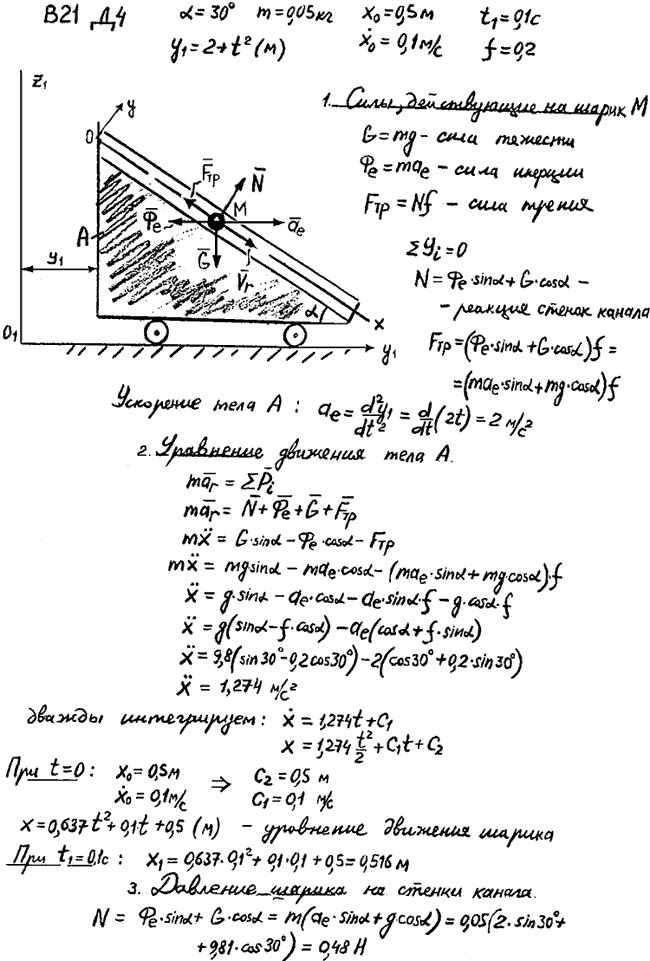 В21 Д4 α=30° m=0,05кг x₀=0,5м t₁=0,1с
y₁=2+t² (м) ẋ₀=0,1м/с f=0,2
z₁
y
O
F̄тр
N̄
M
Φ̄e
āe
A
y₁
Ḡ
V̄r
α
x
O₁
y₁
1. Силы, действующие на шарик М
G=mg - сила тяжести
Φe=mae - сила инерции
Fтр=Nf - сила трения
Σyᵢ=0
N=Φe·sinα+G·cosα -
- реакция стенок канала
Fтр=(Φe·sinα+G·cosα)f=
=(mae·sinα+mg·cosα)f
Ускорение тела А: ae=d²y₁/dt²=d/dt(2t)=2 м/с²
2. Уравнение движения тела А.
mār = ΣP̄i
mār = N̄+Φ̄e+Ḡ+F̄тр
mẍ = G·sinα-Φe·cosα-Fтр
mẍ = mgsinα-mae·cosα-(mae·sinα+mg·cosα)·f
ẍ = g·sinα-ae·cosα-ae·sinα·f-g·cosα·f
ẍ = g(sinα-f·cosα)-ae(cosα+f·sinα)
ẍ = 9,8(sin30°-0,2cos30°)-2(cos30°+0,2·sin30°)
ẍ = 1,274 м/с²
дважды интегрируем: ẋ=1,274t+C₁
x=1,274 t²/2+C₁t+C₂
При t=0: x₀=0,5м ⇒ C₂=0,5 м
ẋ₀=0,1м/с C₁=0,1 м/с
x=0,637t²+0,1t+0,5 (м) - уровнение движения шарика
При t₁=0,1с: x₁=0,637·0,1²+0,1·0,1+0,5=0,516м
3. Давление шарика на стенки канала.
N= Φe·sinα+G·cosα=m(ae·sinα+g·cosα)=0,05(2·sin30°+
+9,81·cos30°)=0,48 Н